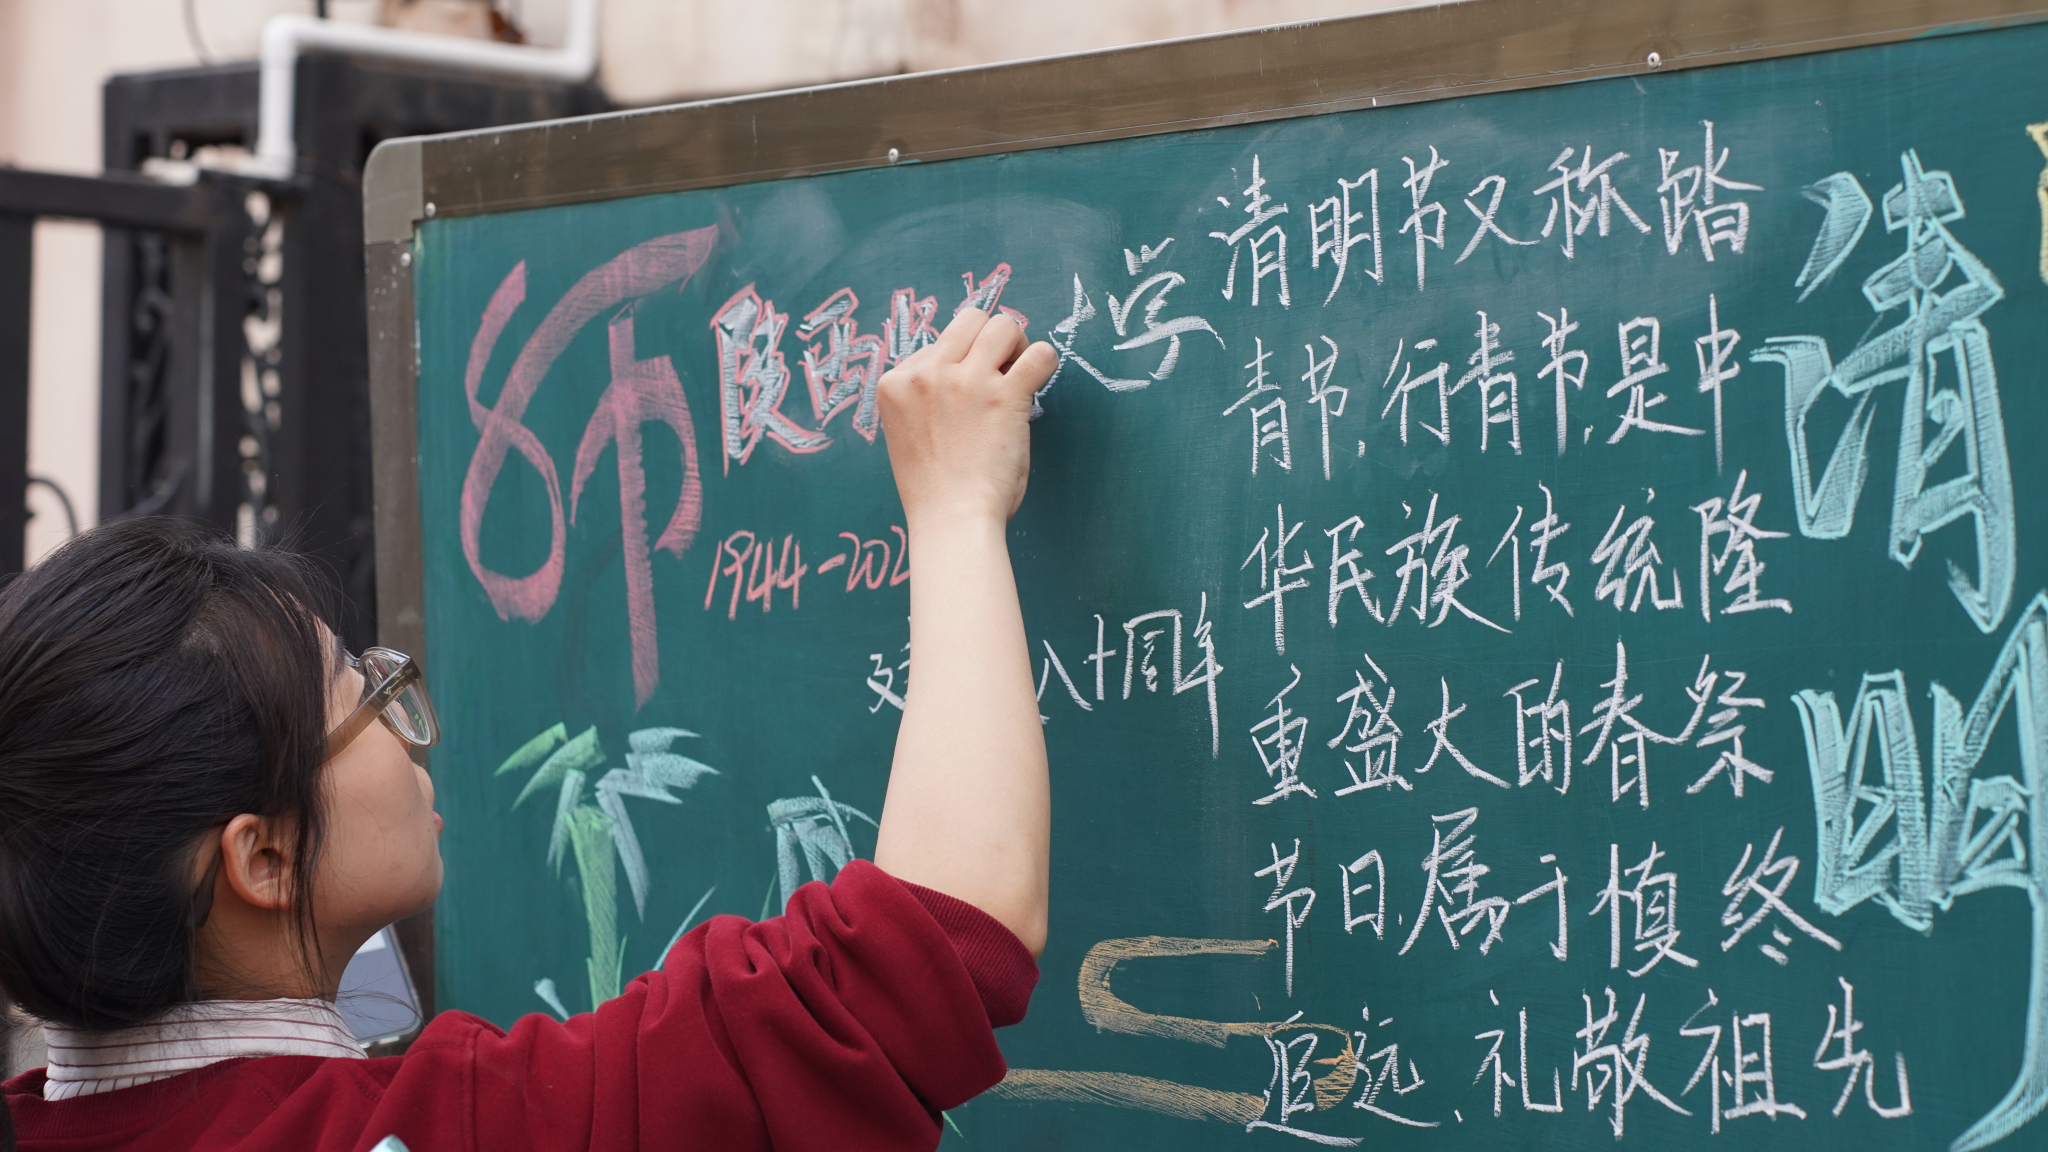 师
陕西师大学
1944-202
建八十周年
清明节又称踏
青节,行青节,是中
华民族传统隆
重盛大的春祭
节日,属于慎终
追远,礼敬祖先
清
明